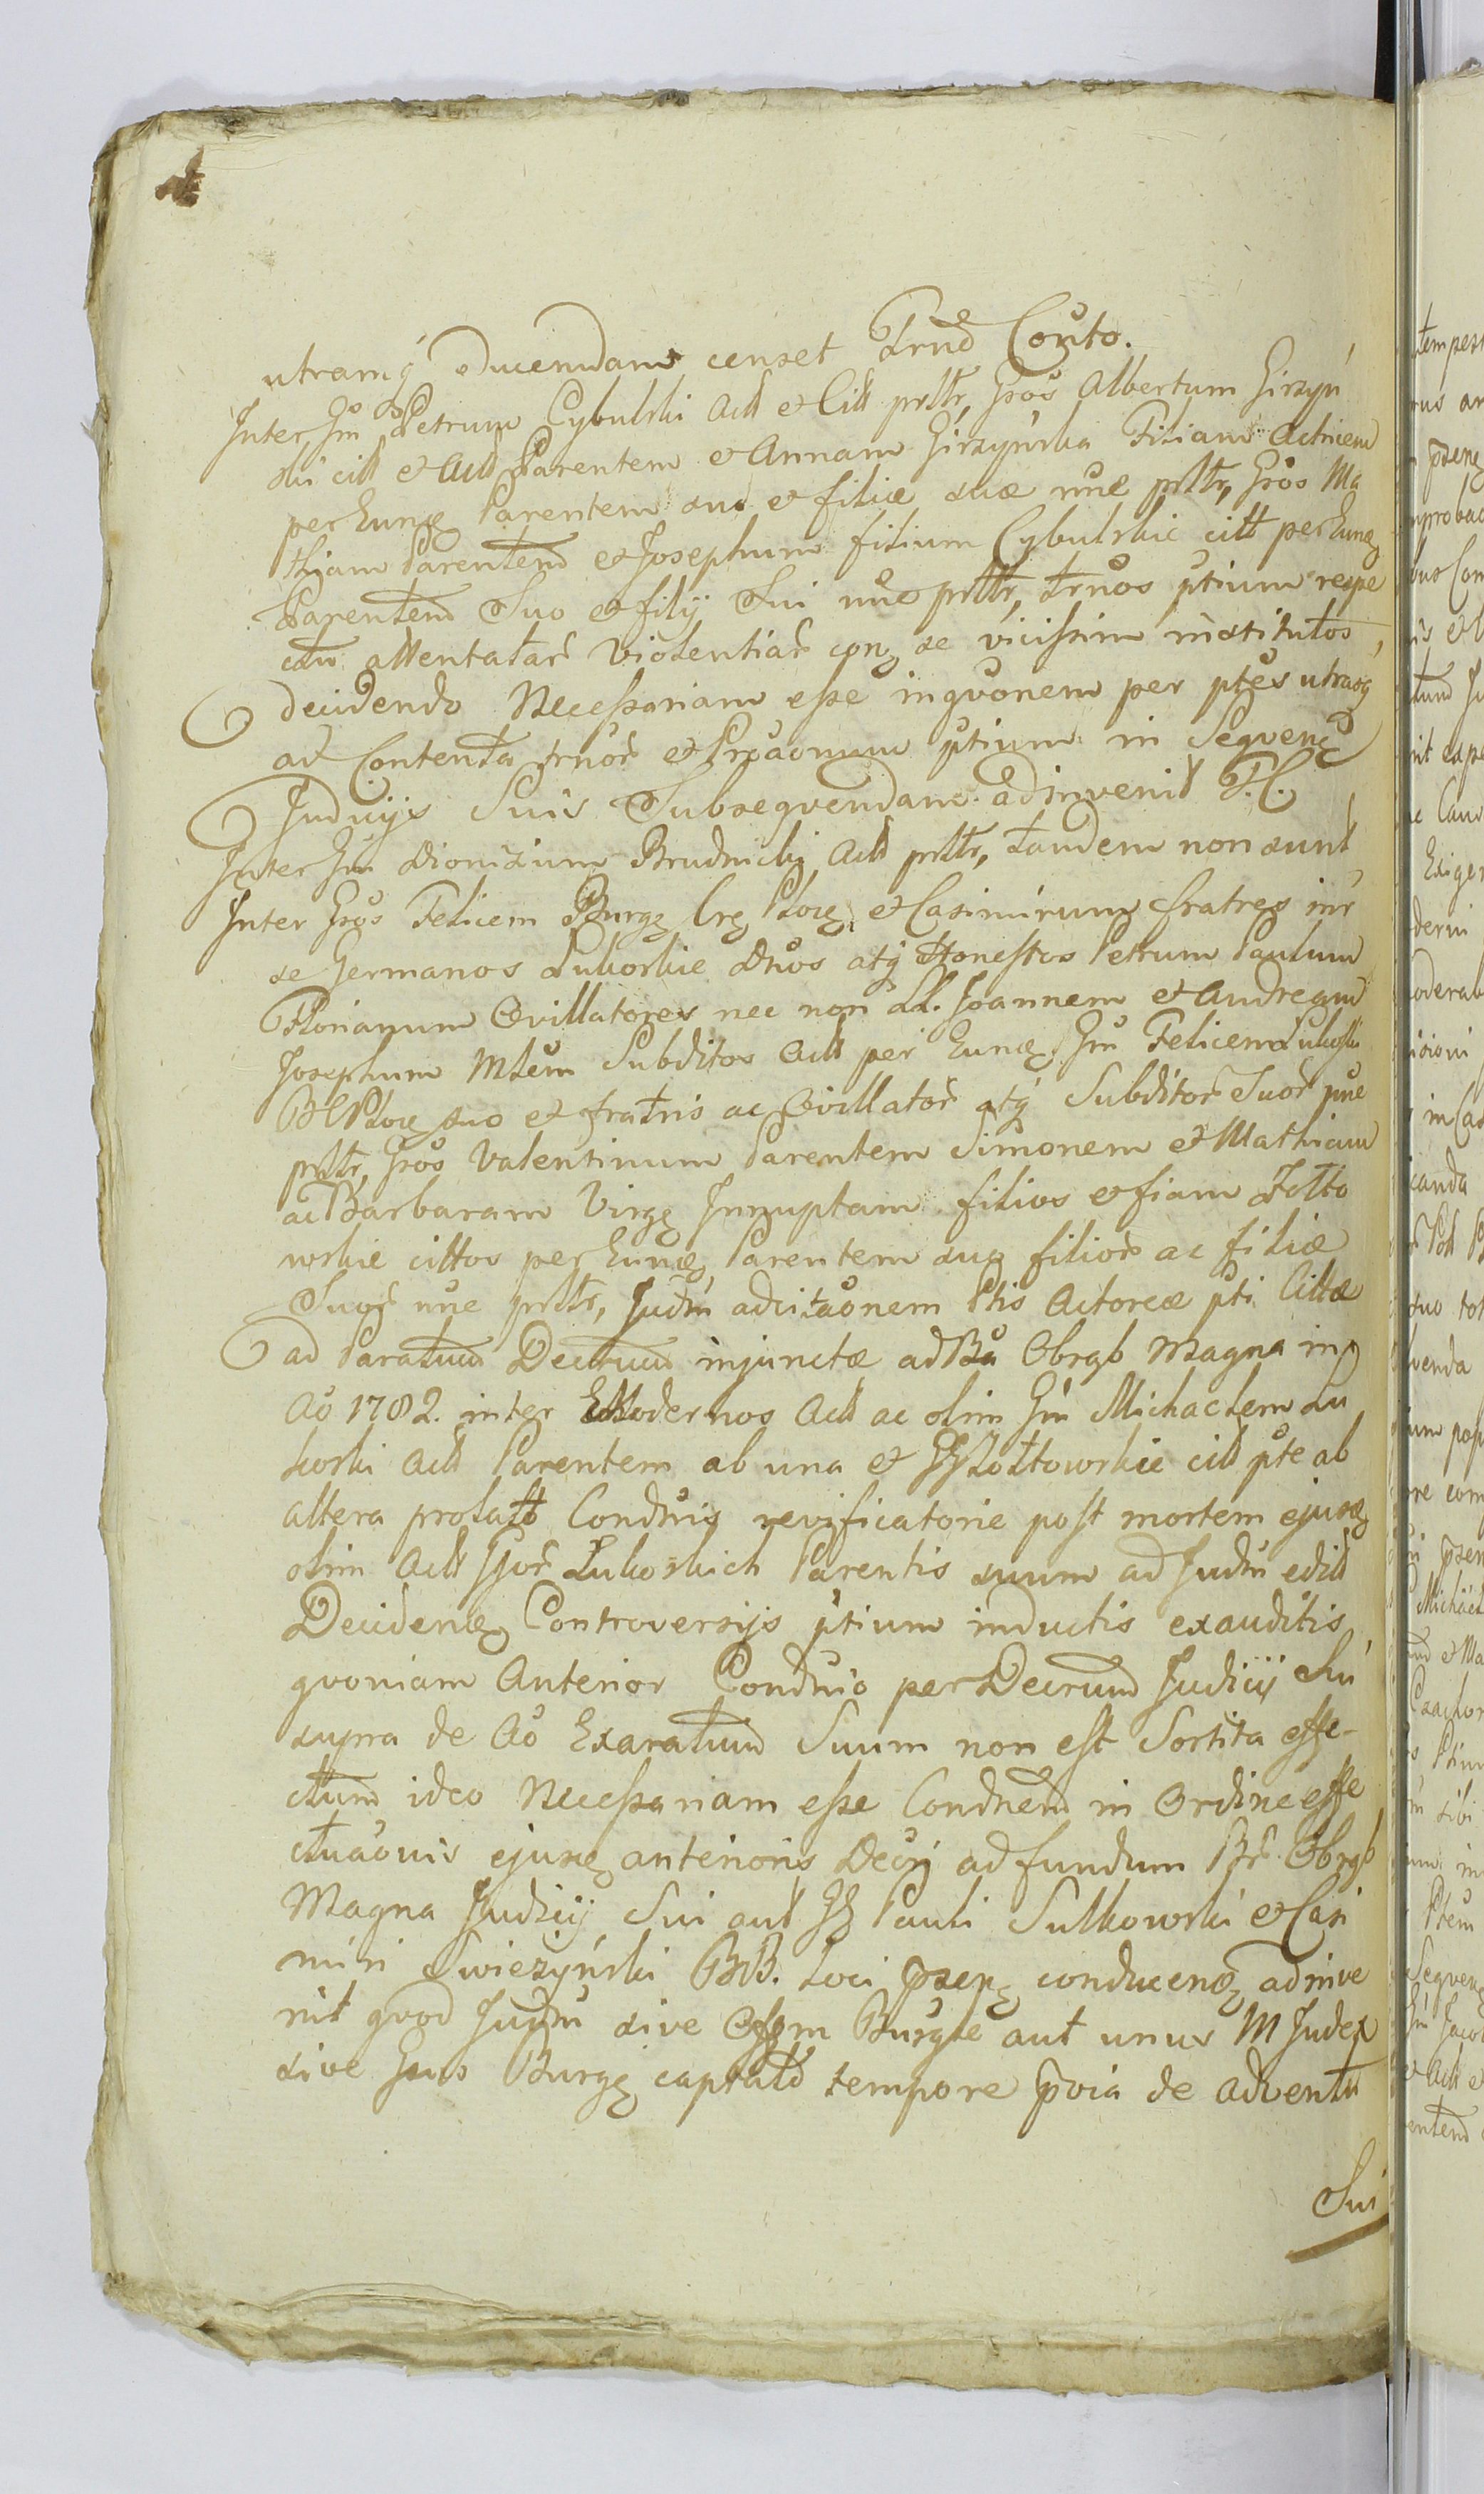 utramq́ educendam censet Trnd Conto.
Inter Gm Petrum Cybulski Act et Citt prltr, Gros Albertum Girzyń
ski citt et Act Parentem et Annam Girzyńska Filiam Actricem
per Eunq Parentem suo et filiæ suæ nñe prltr, Gros Ma
thiam Parentem et Josephum filium Cybulskie citt per Eunq
Parentem Suo et filij Sui nñe prltr, trnos ptium respe
ctu attentatar Violentiar conq se vicissim institutos
decidendo Necessariam esse inqvonem per ptes utrasq
ad Contenta trnor et Proaonum ptium in Seqvenq
Judicijs Suis Subseqvendam adinvenit T. C.
Inter Gm Dionizium Brudnicki Act prltr, tandem non sunt
Inter Gros Felicem Burgq Crq Plocq et Casimirum fratres inr
se Germanos Lukoskie Dnos atq Honestos Petrum Paulum
Florianum Ovillatores nec non LL. Joannem et Andream
Josephum Mlem Subditos Act per Eunq Gm Felicem Lukoski
BCPlocq suo et fratris ac Ovillator atq Subditor Suor pne
prltr, Gros Valentinum Parentem Simonem et Mathiam
ac Barbaram Virgq Innuptam filios et fiam Zołto
wskie cittos per Eunq Parentem suo filior ac filiæ
Suor nñe prltr, Judm adcitaonem Ptis Actoreæ pti Cittæ
ad Paratum Decretum injunctæ ad Ba Obrgb Magna in
Ao 1782. inter Modernos Act ac olim Gm Michaelem Lu
koski Act Parentem ab una et GG Zołtowskie citt pte ab
altera prolatt Condnis revificatorie post mortem ejusq
olim Act Gor Lukoskich Parentis suum ad Judm edid
Decidenq Controversijs ptium inductis exauditis
qvoniam Anterior Condnio per Decrum Judicij Sui
supra de Ao Exaratum Suum non est Sortita effe-
ctum ideo Necessariam esse Condnem in Ordine effe
ctuaonis ejusq anterioris Decrj ad fundum Br Obrgb
Magna Judicij Sui aut GG Pauli Sulkowski et Casi
miri Swiezyński BB. Loci psenq conducenq adinve
nit qvod Judm sive Offm Burgle aut unus M Judex
sive Gnus Burgq captato tempore pvia de adventu
Sui